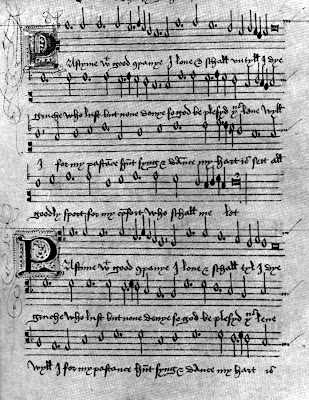 Pastyme wt good companye I love & schall untyll I dye
gruche who lust but none denye so god be plesyd thus leve wyll
I for my pastance hunt syng & daunce my hart is sett all
goodly sport for my comfort who schall me let
Pastyme wt good companye I love & schall tyl I dye
gruche who lust but none denye so god be plesyd thus leve
wyll I for my pastance hunt syng & daunce my hart is